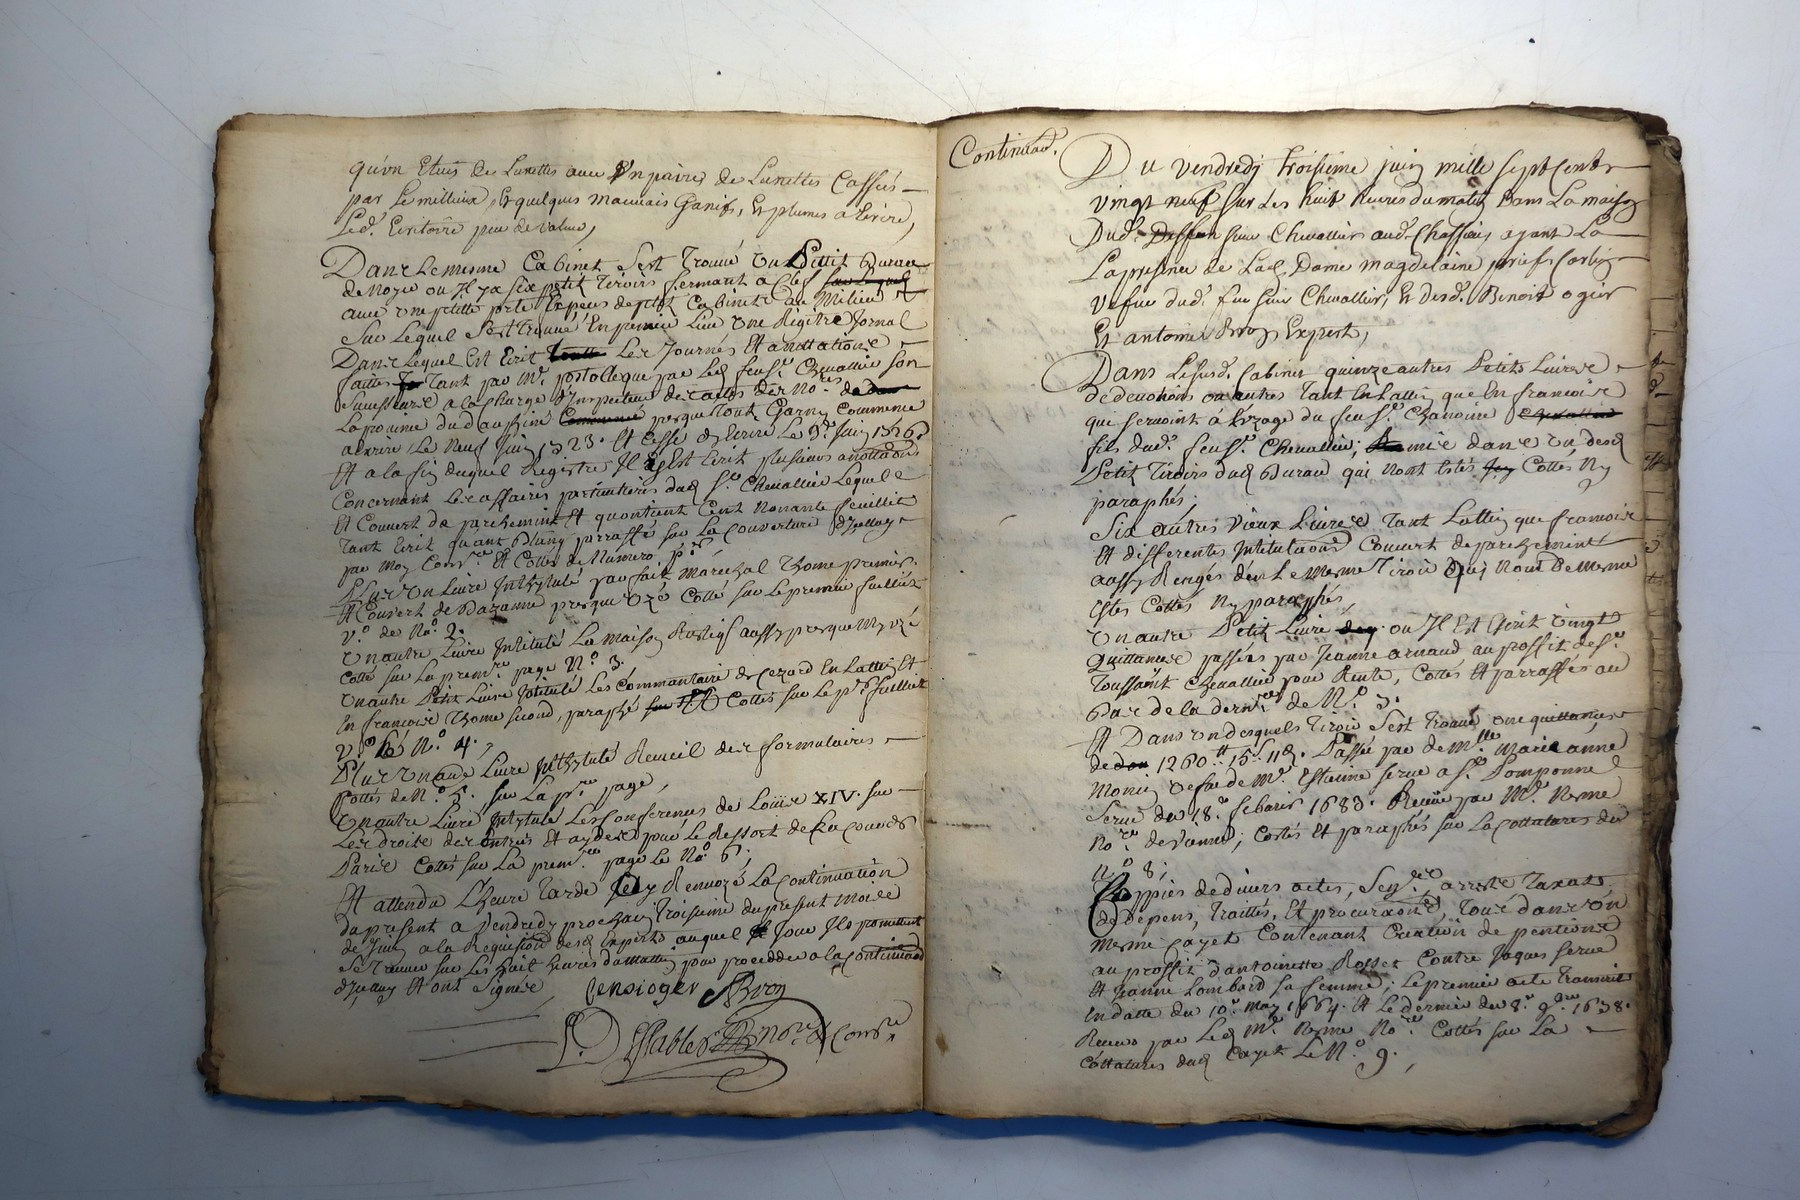 qu'un Etuis de Lunettes avec Un paires de Lunettes Cassés
par Le millieux, Et quelques mauvais Ganifs, Et plumes a Ecrire,
Led. Ecritoire peu de valeur,
Dans Le mesme Cabinet Sest Trouvé Un Pettit Bureau
de Noyer ou Il y a six petit Tiroirs fermant a Clef
avec une petitte porte Especes de petit Cabinets au Milieu
Sur Lequel Sest Trouvé En premier Lieu Une Régitre Jornal
Dans Lequel Est Ecrit Les Journés Et annottations
faittes Tant par Mr. postolle que par Led feu Sr. Chevallier Son
Successeur a la Charge d'Inspecteur des actes des No.res
La poume du dauphiné presque Tout Garny Commence
a ecrire Le Neuf Juin 1723. Et Cesse d'y Ecrire Le 9e. Juin 1726.
Et a la fin duquel Registre Il y Est Ecrit plusieurs anottations
Concernant Les affaires particulieres dud Sr. Chevallier Lequel
Est Couvert de parchemin Et quontient Cent Nonante feuillets
Tant Ecrit quant Blanq parraffé sur La Couverture d'Icelluy
par Moy Cons.re Et Cottes de Numero p.er
Plus Un Livre Inthytulé parfait Maréchal Thome premier.
Et Couvert de Bazanne presque Uzé Cotté sur Le premier fuilliet
V.o de No. 2.
Un autre Livre Intitulé La maison Rustiq aussy presque My uzé
Cotté sur La prem.re page No. 3.
Un autre Petit Livre Intitulé Les Commantaire de Cezard En Lattin Et
En francois Thome second, paraphé Et Cottés sur Le p.er fuilliet
V.o No. 4.,
Plus Un aud Livre Inthytulé Recueil des formulaires
Cottés de No. 5. sur La p.re page,
Un autre Livre Intytulé Les Conferences de Louis XIV. sur
Les droits des Entrés Et aydes pour Le Ressort de La Cour des
Paris Cottés sur La prem.re page Le No. 6.
Et attendu L'heure Tarde Renvoyé La Continuation
du present a Vendredy prochain Troisieme du present Mois
de Juin a la Requisition desd Experts auquel Jour Ils promettent
Se Trouver sur Les huit heures du Mattin pour proceder a la Continuaon
d'Iceluy Et ont Signés
Bens ioger ABroy
Continuaon.
Du vendredy troisieme juin mille sept Cents
vingt neuf sur Les huit heures du matin Dans La maison
Dud. sieur Chevallier aud. Chassieu ayant La
La presence de Lad. Dame magdelaine
Vefue dud. feu sieur Chevallier, Et desd. Benoit ogier
Et antoine Broy Expert,
Dans Le susd. Cabinet quinze autres Petits Livres
de devotions ou autres Tant En Lattin que En francois
qui servoint à Luzage du feu Sr. Chanoine
fils dud. feu Sr. Chevallier; mis dans Un desd
Petit Tiroirs dud Bureau qui nont Estés Cottés Ny
paraphés;
Six autres Vieux Livres Tant Lattin que francois
Et differentes Intitulations Couvert de parchemint
aussy Rengés dens Le Mesme Tiroir qui nont De mesme
Estes Cottés Ny paraphés,
Un autre Petit Livre ou Il Est Ecrit Vingt
Quittances passées par Jeanne arnaud au proffit de Sr.
Toussaint Chevallier pour Rente, Cottés Et parraffés au
Bas de la derni.re de No. 7.
Et Dans Un desquels Tiroir Sest Trouvé Une quittances
de 1260 tt 15 s 11 d. Passée par de M.lle Marie anne
Vefue de Mr. Estienne serve a Sr. Pomponne
Serve du 18.e febvrier 1683. Receue par Mr.
No.re de Vienne; Cottés Et paraphés sur La Cottatures du
N.o 8;
Coppies de divers actes, Sen.ce arrests Taxats,
de depens, Traittés, Et procurations, Tous dans Un
mesme Cayet Contenant Creation de pentions
au proffit d'antoinette Rosset Contre Jaques serve
Et Jeanne Lombard Sa femme; Le premier acte
En datte du 10.e May 1664. Et Le dernier du 8.e 9.bre 1638.
Receus par Led Mr. No.re Cottés sur La
Cottatures dud Cayet Le No. 9.,